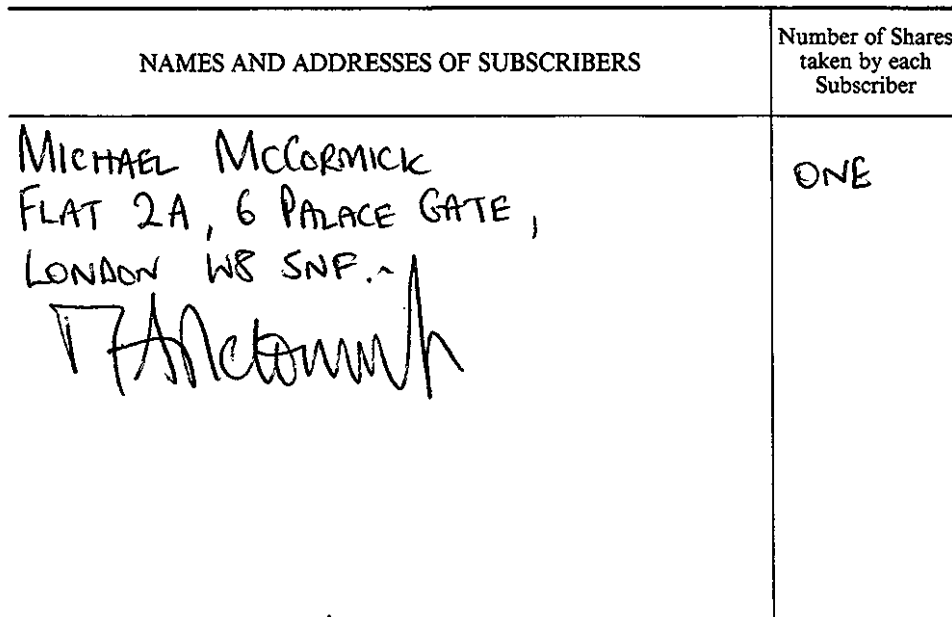 NAMES AND ADDRESSES OF SUBSCRIBERS
Number of Shares
taken by each
Subscriber
MICHAEL MCCORMICK
ONE
FLAT 2A, 6 PALACE GATE,
LONDON W8 5NF.